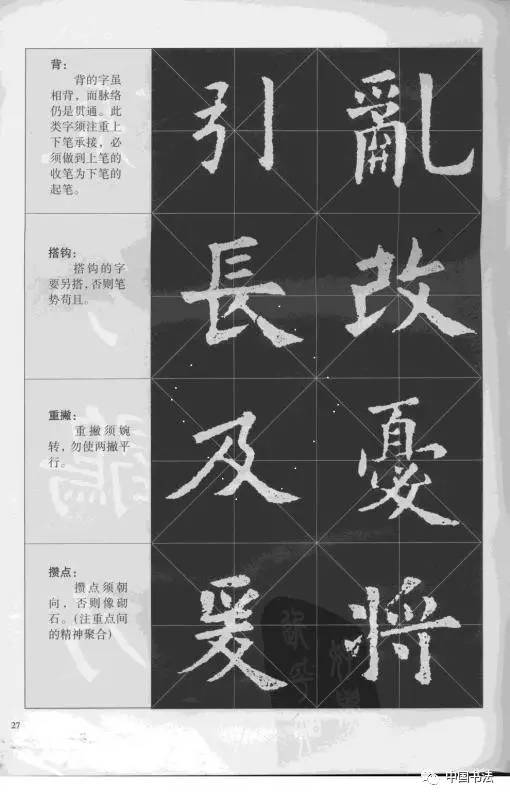 背：
背的字虽
相背，而脉络
仍是贯通。此
类字须注重上
下笔承接，必
须做到上笔的
收笔为下笔的
起笔。
引 亂
搭钩：
搭钩的字
要另搭，否则笔
势苟且。
長 改
重撇：
重撇须婉
转，勿使两撇平
行。
及 憂
攒点：
攒点须朝
向，否则像砌
石。(注重点间
的精神聚合)
爰 将
27
中国书法